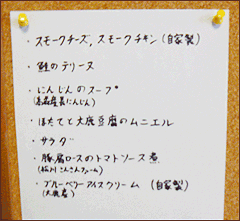 ・スモークチーズ,スモークチキン(自家製)
・鮭のテリーヌ
・にんじんのスープ
・ほたてと大鹿豆腐のムニエル
・サラダ
・豚肩ロースのトマトソース煮
・ブルーベリーアイスクリーム (自家製)